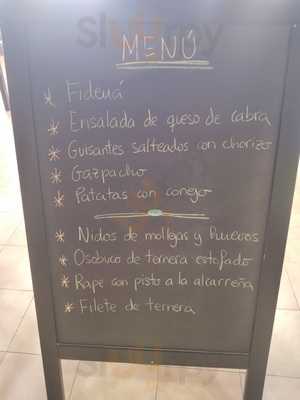 MENÚ
* Fideuá
* Ensalada de queso de cabra
* Guisantes salteados con chorizo
* Gazpacho
* Patatas con conejo
* Nidos de mollejas y huevos
* Osobuco de ternera estofado
* Rape con pisto a la alcarreña
* Filete de ternera